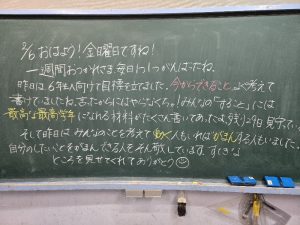 2/6 おはよう!金曜日ですね!
一週間おつかれさま。毎日1つ1つがんばったね。
昨日は6年生へ向けて目標を立てました。今からできること、よく考えて
書けていましたね。言ったからにはやらなくちゃ!みんなの"すること"には
最高な最高学年になれる材料がたくさん書いてあったよ。残り29日、見守
そして昨日は みんなのことを考えて動く人もいれば がまんする人もいました。
自分のしたいことをがまんできる人をそん敬しています。すてきな
ところを見せてくれてありがとう